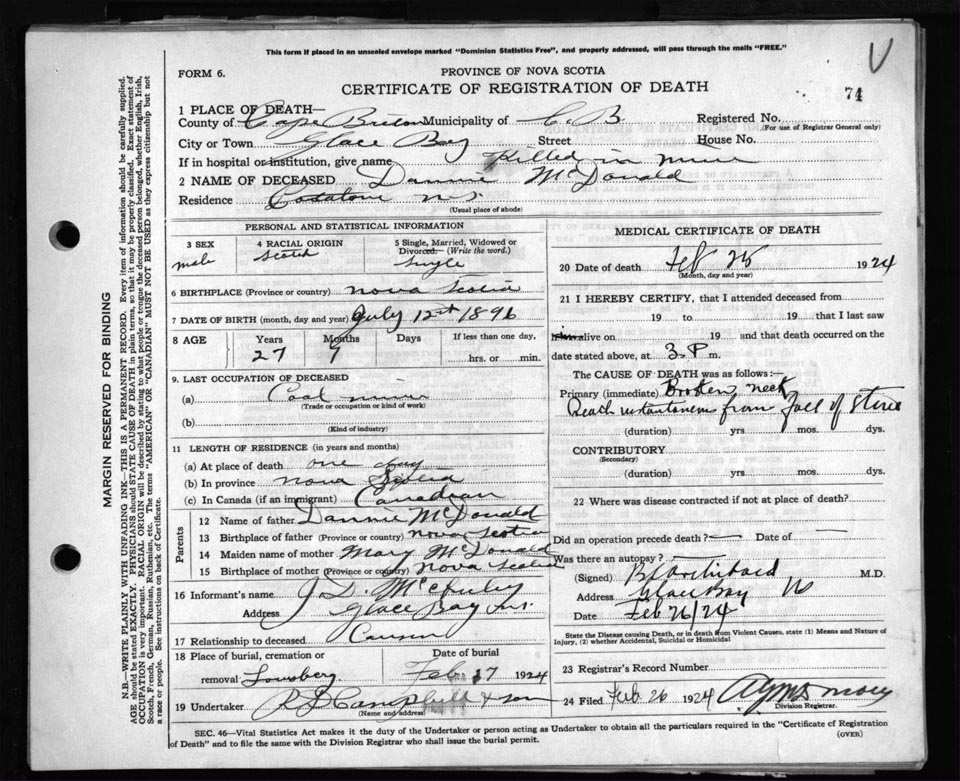 This form if placed in an unsealed envelope marked "Dominion Statistics Free", and properly addressed, will pass through the mails "FREE."
V
FORM 6.
PROVINCE OF NOVA SCOTIA
CERTIFICATE OF REGISTRATION OF DEATH
74
1 PLACE OF DEATH—
County of Cape Breton Municipality of C. B. Registered No.
(For use of Registrar General only)
City or Town Glace Bay Street House No.
If in hospital or institution, give name Killed in mine
2 NAME OF DECEASED Dannie McDonald
Residence N.S.
(Usual place of abode)
PERSONAL AND STATISTICAL INFORMATION
3 SEX male
4 RACIAL ORIGIN Scotch
5 Single, Married, Widowed or Divorced.— (Write the word.)
Single
6 BIRTHPLACE (Province or country) Nova Scotia
7 DATE OF BIRTH (month, day and year) July 12st 1896
8 AGE Years Months Days If less than one day,
27 7 hrs. or min.
9. LAST OCCUPATION OF DECEASED
(a) Coal miner
(Trade or occupation or kind of work)
(b)
(Kind of industry)
11 LENGTH OF RESIDENCE (in years and months)
(a) At place of death one day
(b) In province Nova Scotia
(c) In Canada (if an immigrant) Canadian
Parents
12 Name of father Dannie McDonald
13 Birthplace of father (Province or country) Nova Scotia
14 Maiden name of mother Mary McDonald
15 Birthplace of mother (Province or country) Nova Scotia
16 Informant's name J. D.
Address Glace Bay N.S.
17 Relationship to deceased
18 Place of burial, cremation or removal Date of burial
Feb 27 1924
19 Undertaker Campbell & son
(Name and address)
MEDICAL CERTIFICATE OF DEATH
20 Date of death Feb 25 1924
(Month, day and year)
21 I HEREBY CERTIFY, that I attended deceased from
19 to 19 that I last saw
alive on 19 and that death occurred on the
date stated above, at 3. P m.
The CAUSE OF DEATH was as follows:—
Primary (immediate) Broken neck
Death instantaneous from fall of stone
(duration) yrs. mos. dys.
CONTRIBUTORY
(Secondary)
(duration) yrs. mos. dys.
22 Where was disease contracted if not at place of death?
Did an operation precede death? — Date of —
Was there an autopsy? —
(Signed) M.D.
Address Glace Bay
Date Feb 26/24
State the Disease causing Death, or in death from Violent Causes, state (1) Means and Nature of Injury, (2) whether Accidental, Suicidal or Homicidal
23 Registrar's Record Number
24 Filed Feb. 26 1924
Division Registrar.
SEC. 46—Vital Statistics Act makes it the duty of the Undertaker or person acting as Undertaker to obtain all the particulars required in the "Certificate of Registration
of Death" and to file the same with the Division Registrar who shall issue the burial permit.
(OVER)
MARGIN RESERVED FOR BINDING
N.B.—WRITE PLAINLY WITH UNFADING INK—THIS IS A PERMANENT RECORD. Every item of information should be carefully supplied.
AGE should be stated EXACTLY. PHYSICIANS should STATE CAUSE OF DEATH in plain terms, so that it may be properly classified. Exact statement of
OCCUPATION is very important. RACIAL ORIGIN will be described by stating to what people or tongue the deceased person belonged, whether English, Irish,
Scotch, French, German, Russian, Ruthenian, etc. The terms "AMERICAN" or "CANADIAN" MUST NOT BE USED as they express citizenship but not
a race or people. See instructions on back of Certificate.